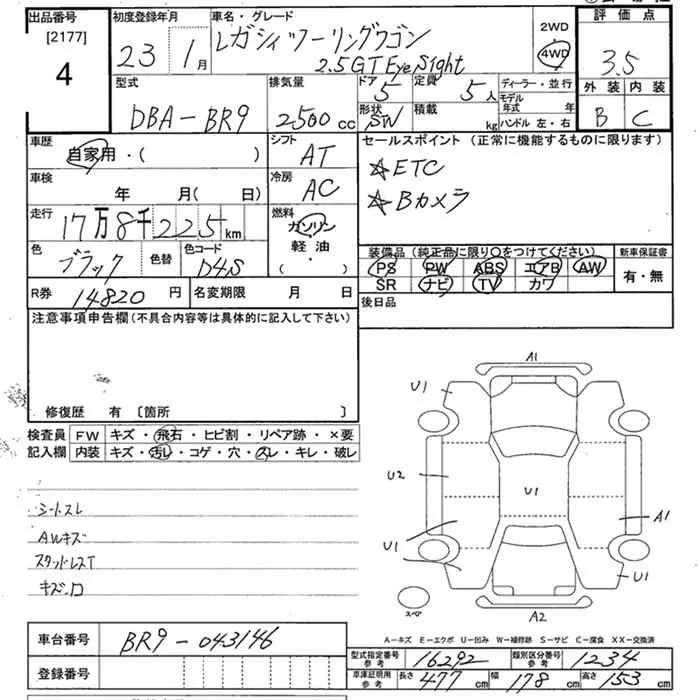 出品番号 [2177] 4
初度登録年月 23年 1月
車名・グレード レガシィツーリングワゴン 2.5GT EyeSight
2WD・4WD
評価点 3.5
外装 B 内装 C
型式 DBA-BR9
排気量 2500cc
ドア 5 形状 SW
定員 5人 積載 kg
ディーラー・並行
モデル年式 年
ハンドル 左・右
車歴 自家用・( )
シフト AT
セールスポイント(正常に機能するものに限ります)
☆ETC
☆Bカメラ
車検 年 月(日)
冷房 AC
走行 17万8千225km
燃料 ガソリン 軽油・( )
色 ブラック 色替 色コード D4S
装備品(純正品に限り○をつけてください)
PS PW ABS エアB AW
SR ナビ TV カワ
新車保証書 有・無
R券 14820円 名変期限 月 日
後日品
注意事項申告欄(不具合内容等は具体的に記入して下さい)
修復歴 有 [箇所 ]
検査員記入欄
FW キズ・飛石・ヒビ割・リペア跡・×要
内装 キズ・汚レ・コゲ・穴・スレ・キレ・破レ
シートスレ
AWキズ
スタッドレスT
キズ・凹
A1
U1
U2
U1
A1
U1
U1
スペア
A2
A-キズ E-エクボ U-凹み W-補修跡 S-サビ C-腐食 XX-交換済
車台番号 BR9-043146
登録番号
型式指定番号 参考 16292 類別区分番号 参考 1234
車庫証明用 参考 長さ 477cm 幅 178cm 高さ 153cm